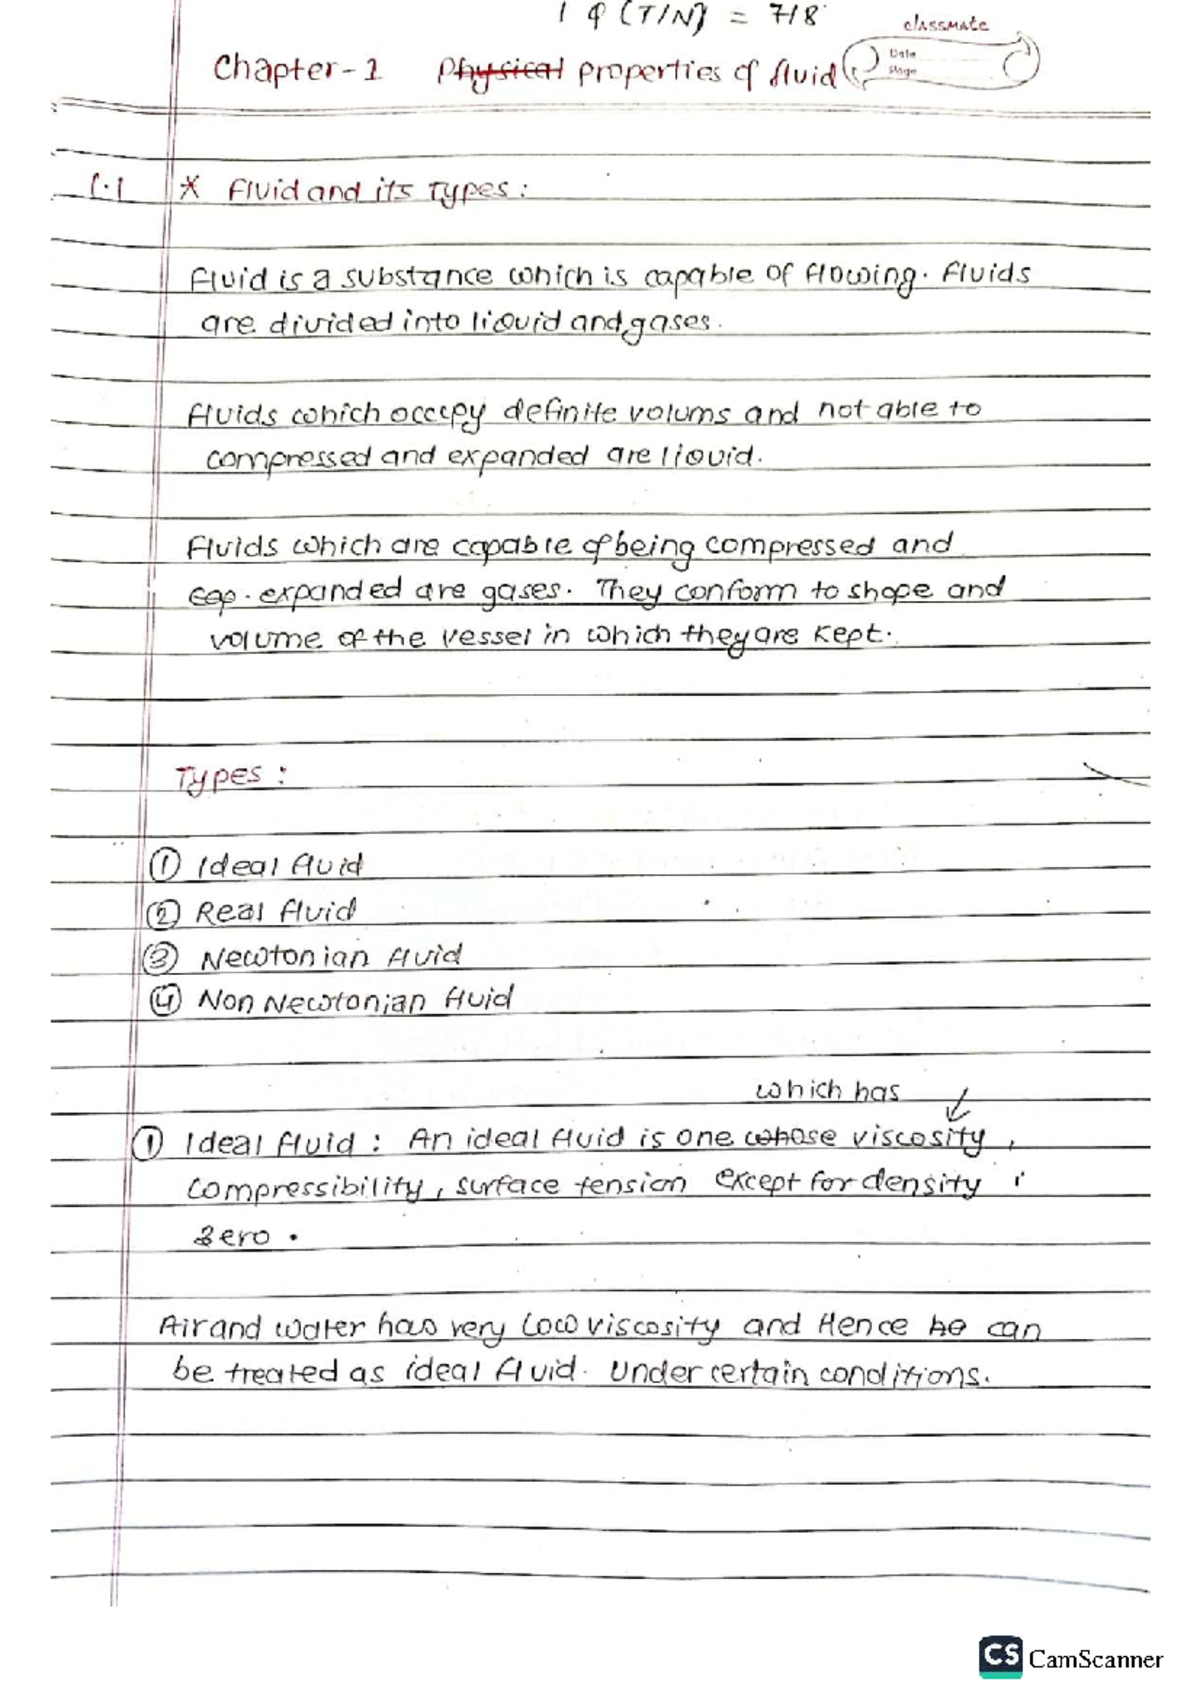 1 Q (T/N) = 7/8
classmate
Date
Page
Chapter-1 Physical properties of fluid
1.1 * Fluid and its Types:
Fluid is a substance which is capable of flowing. Fluids
are divided into liquid and gases.
Fluids which occupy definite volums and not able to
compressed and expanded are liquid.
Fluids which are capable of being compressed and
cap. expanded are gases. They conform to shape and
volume of the vessel in which they are kept.
Types:
① Ideal fluid
② Real fluid
③ Newtonian fluid
④ Non Newtonian fluid
which has
① Ideal fluid: An ideal fluid is one whose viscosity,
compressibility, surface tension except for density i
zero.
Air and water has very low viscosity and Hence he can
be treated as ideal fluid. Under certain conditions.
CS CamScanner